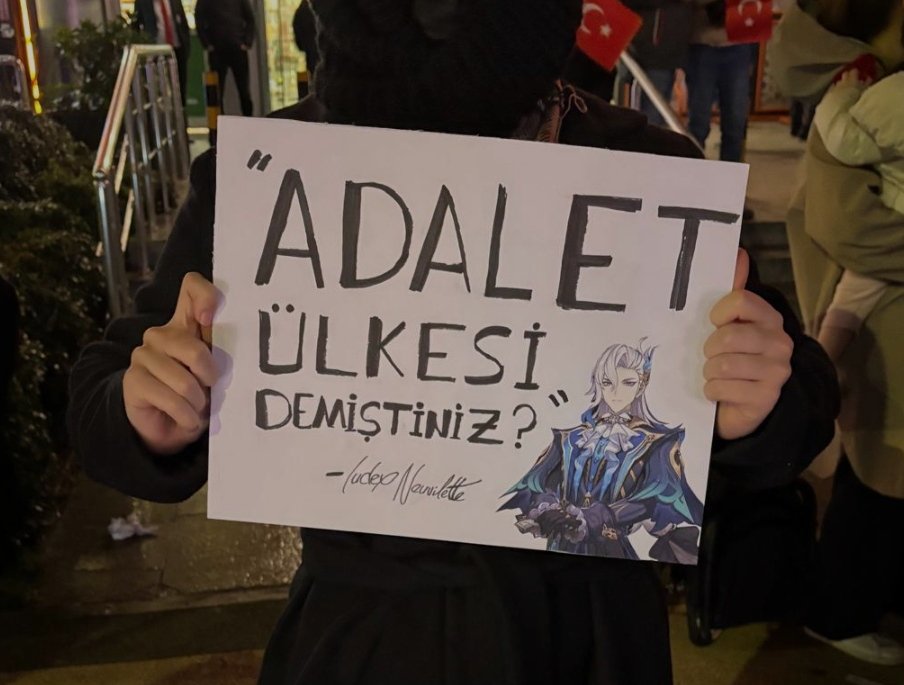 "ADALET
ÜLKESİ
DEMİŞTİNİZ?"
-Iudex Neuvilette